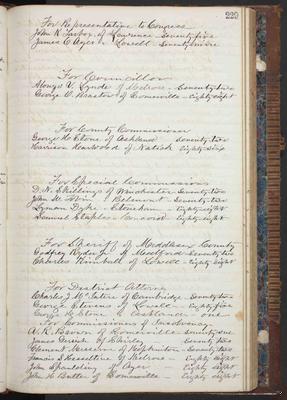 220
For Representative to Congress
John K. Tarbox of Lawrence - Seventy five
James C. Ayer - Lowell - Seventy
For Councillor
Alonzo V. Lynde of Melrose - Seventy two
George O. Brastow of Somerville - Eighty eight
For County Commissioner
George H. Stone of Ashland Seventy two
Harrison Harwood of Natick Eighty six
For Special Commissioners
D. N. Skillings of Winchester Seventy two
John Belmont - Seventy two
Lyman Dyke - Stoneham - Eighty eight
Samuel Staples - Eighty eight
For Sheriff of Middlesex County
Godfrey Ryder Jr of Medford - Seventy two
Charles Kimball of Lowell - Eighty eight
For District Attorney
Charles J. McIntire of Cambridge Seventy two
George Stevens of Lowell - Eighty five
George H. Stone of Ashland - one
For Commissioners of Insolvency
A. R. Brown of Somerville - Seventy one
James of Shirley Seventy two
Clement of Hopkinton - Seventy two
Francis S. Hesseltine of Melrose - Eighty eight
John Spaulding Ayer - Eighty eight
John H. Butler of Somerville - Eighty eight